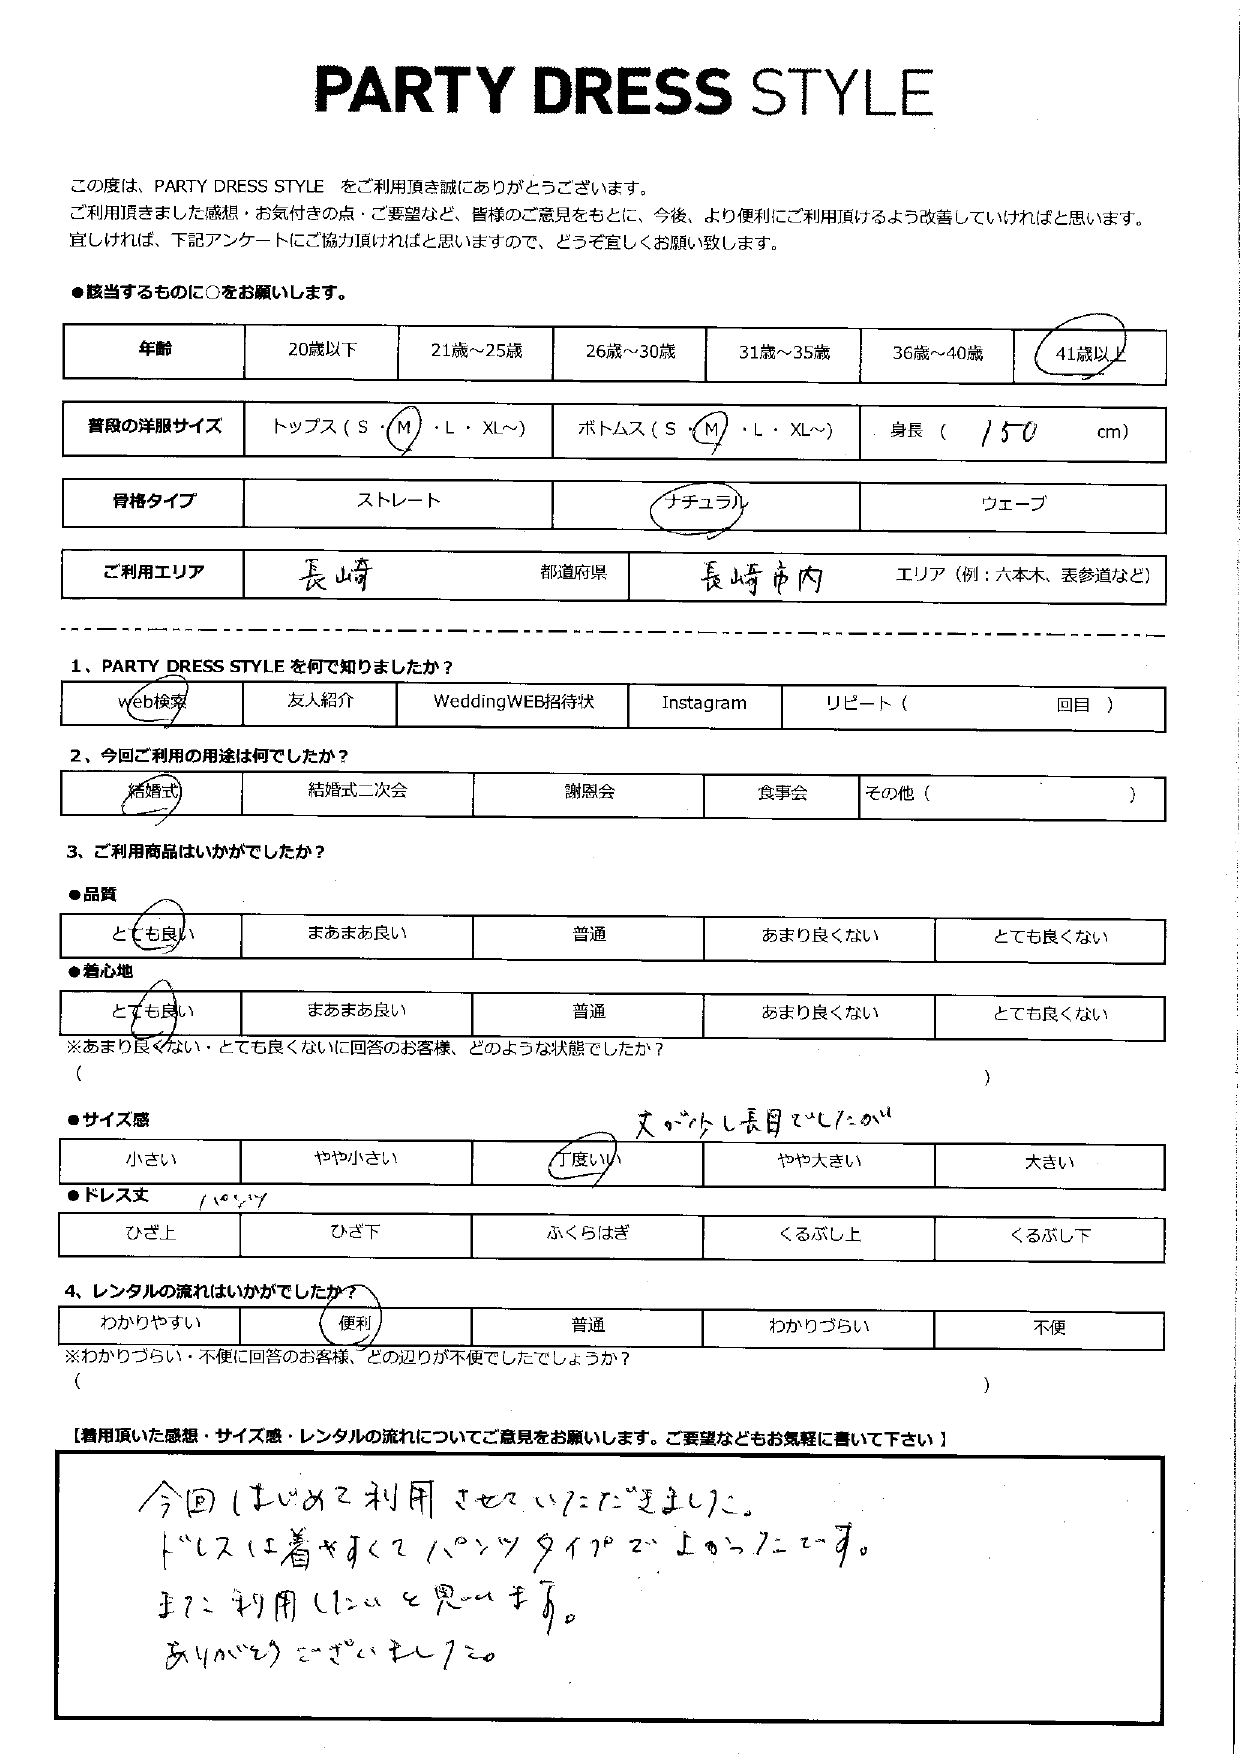 PARTY DRESS STYLE
この度は、PARTY DRESS STYLE をご利用頂き誠にありがとうございます。
ご利用頂きました感想・お気付きの点・ご要望など、皆様のご意見をもとに、今後、より便利にご利用頂けるよう改善していければと思います。
宜しければ、下記アンケートにご協力頂ければと思いますので、どうぞ宜しくお願い致します。
●該当するものに○をお願いします。
年齢 20歳以下 21歳～25歳 26歳～30歳 31歳～35歳 36歳～40歳 41歳以上
普段の洋服サイズ トップス ( S ・ M ・ L ・ XL～) ボトムス ( S ・ M ・ L ・ XL～) 身長 ( 150 cm)
骨格タイプ ストレート ナチュラル ウェーブ
ご利用エリア 長崎 都道府県 長崎市内 エリア（例：六本木、表参道など）
1、PARTY DRESS STYLE を何で知りましたか？
web検索 友人紹介 WeddingWEB招待状 Instagram リピート ( 回目 )
2、今回ご利用の用途は何でしたか？
結婚式 結婚式二次会 謝恩会 食事会 その他 ( )
3、ご利用商品はいかがでしたか？
●品質
とても良い まあまあ良い 普通 あまり良くない とても良くない
●着心地
とても良い まあまあ良い 普通 あまり良くない とても良くない
※あまり良くない・とても良くないに回答のお客様、どのような状態でしたか？
( )
●サイズ感 丈が少し長目でしたが
小さい やや小さい 丁度いい やや大きい 大きい
●ドレス丈 パンツ
ひざ上 ひざ下 ふくらはぎ くるぶし上 くるぶし下
4、レンタルの流れはいかがでしたか？
わかりやすい 便利 普通 わかりづらい 不便
※わかりづらい・不便に回答のお客様、どの辺りが不便でしたでしょうか？
( )
【着用頂いた感想・サイズ感・レンタルの流れについてご意見をお願いします。ご要望などもお気軽に書いて下さい 】
今回はじめて利用させていただきました。
ドレスは着やすくてパンツタイプで良かったです。
また利用したいと思います。
ありがとうございました。